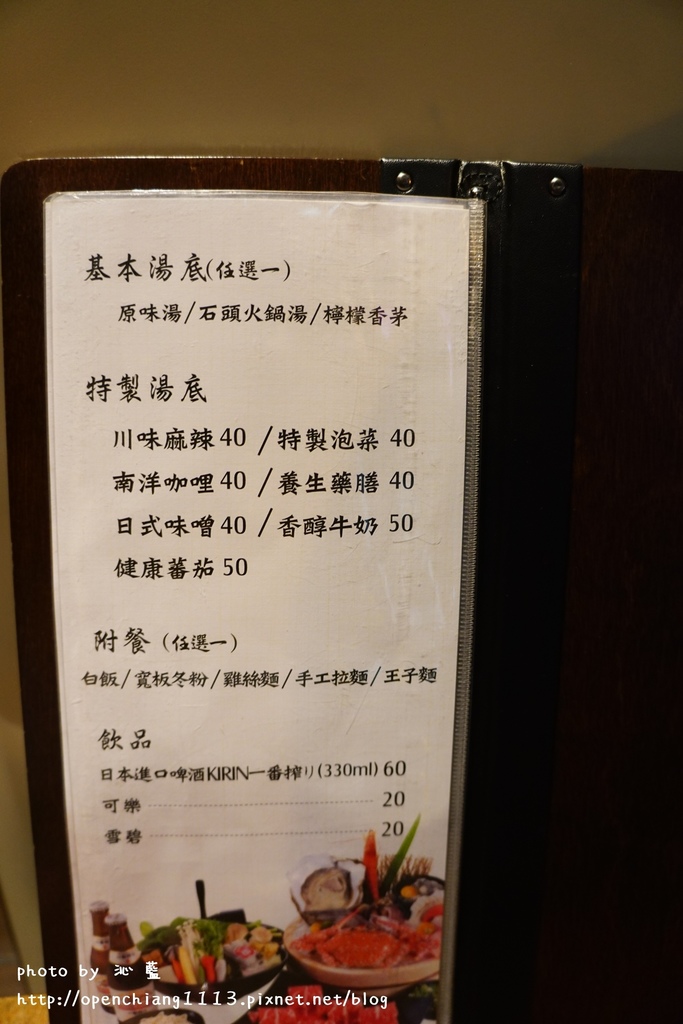 基本湯底(任選一)
原味湯/石頭火鍋湯/檸檬香茅
特製湯底
川味麻辣 40 / 特製泡菜 40
南洋咖哩 40 / 養生藥膳 40
日式味噌 40 / 香醇牛奶 50
健康蕃茄 50
附餐 (任選一)
白飯/寬板冬粉/雞絲麵/手工拉麵/王子麵
飲品
日本進口啤酒KIRIN一番搾り(330ml) 60
可樂 20
雪碧 20
photo by 沁藍
http://openchiang1113.pixnet.net/blog